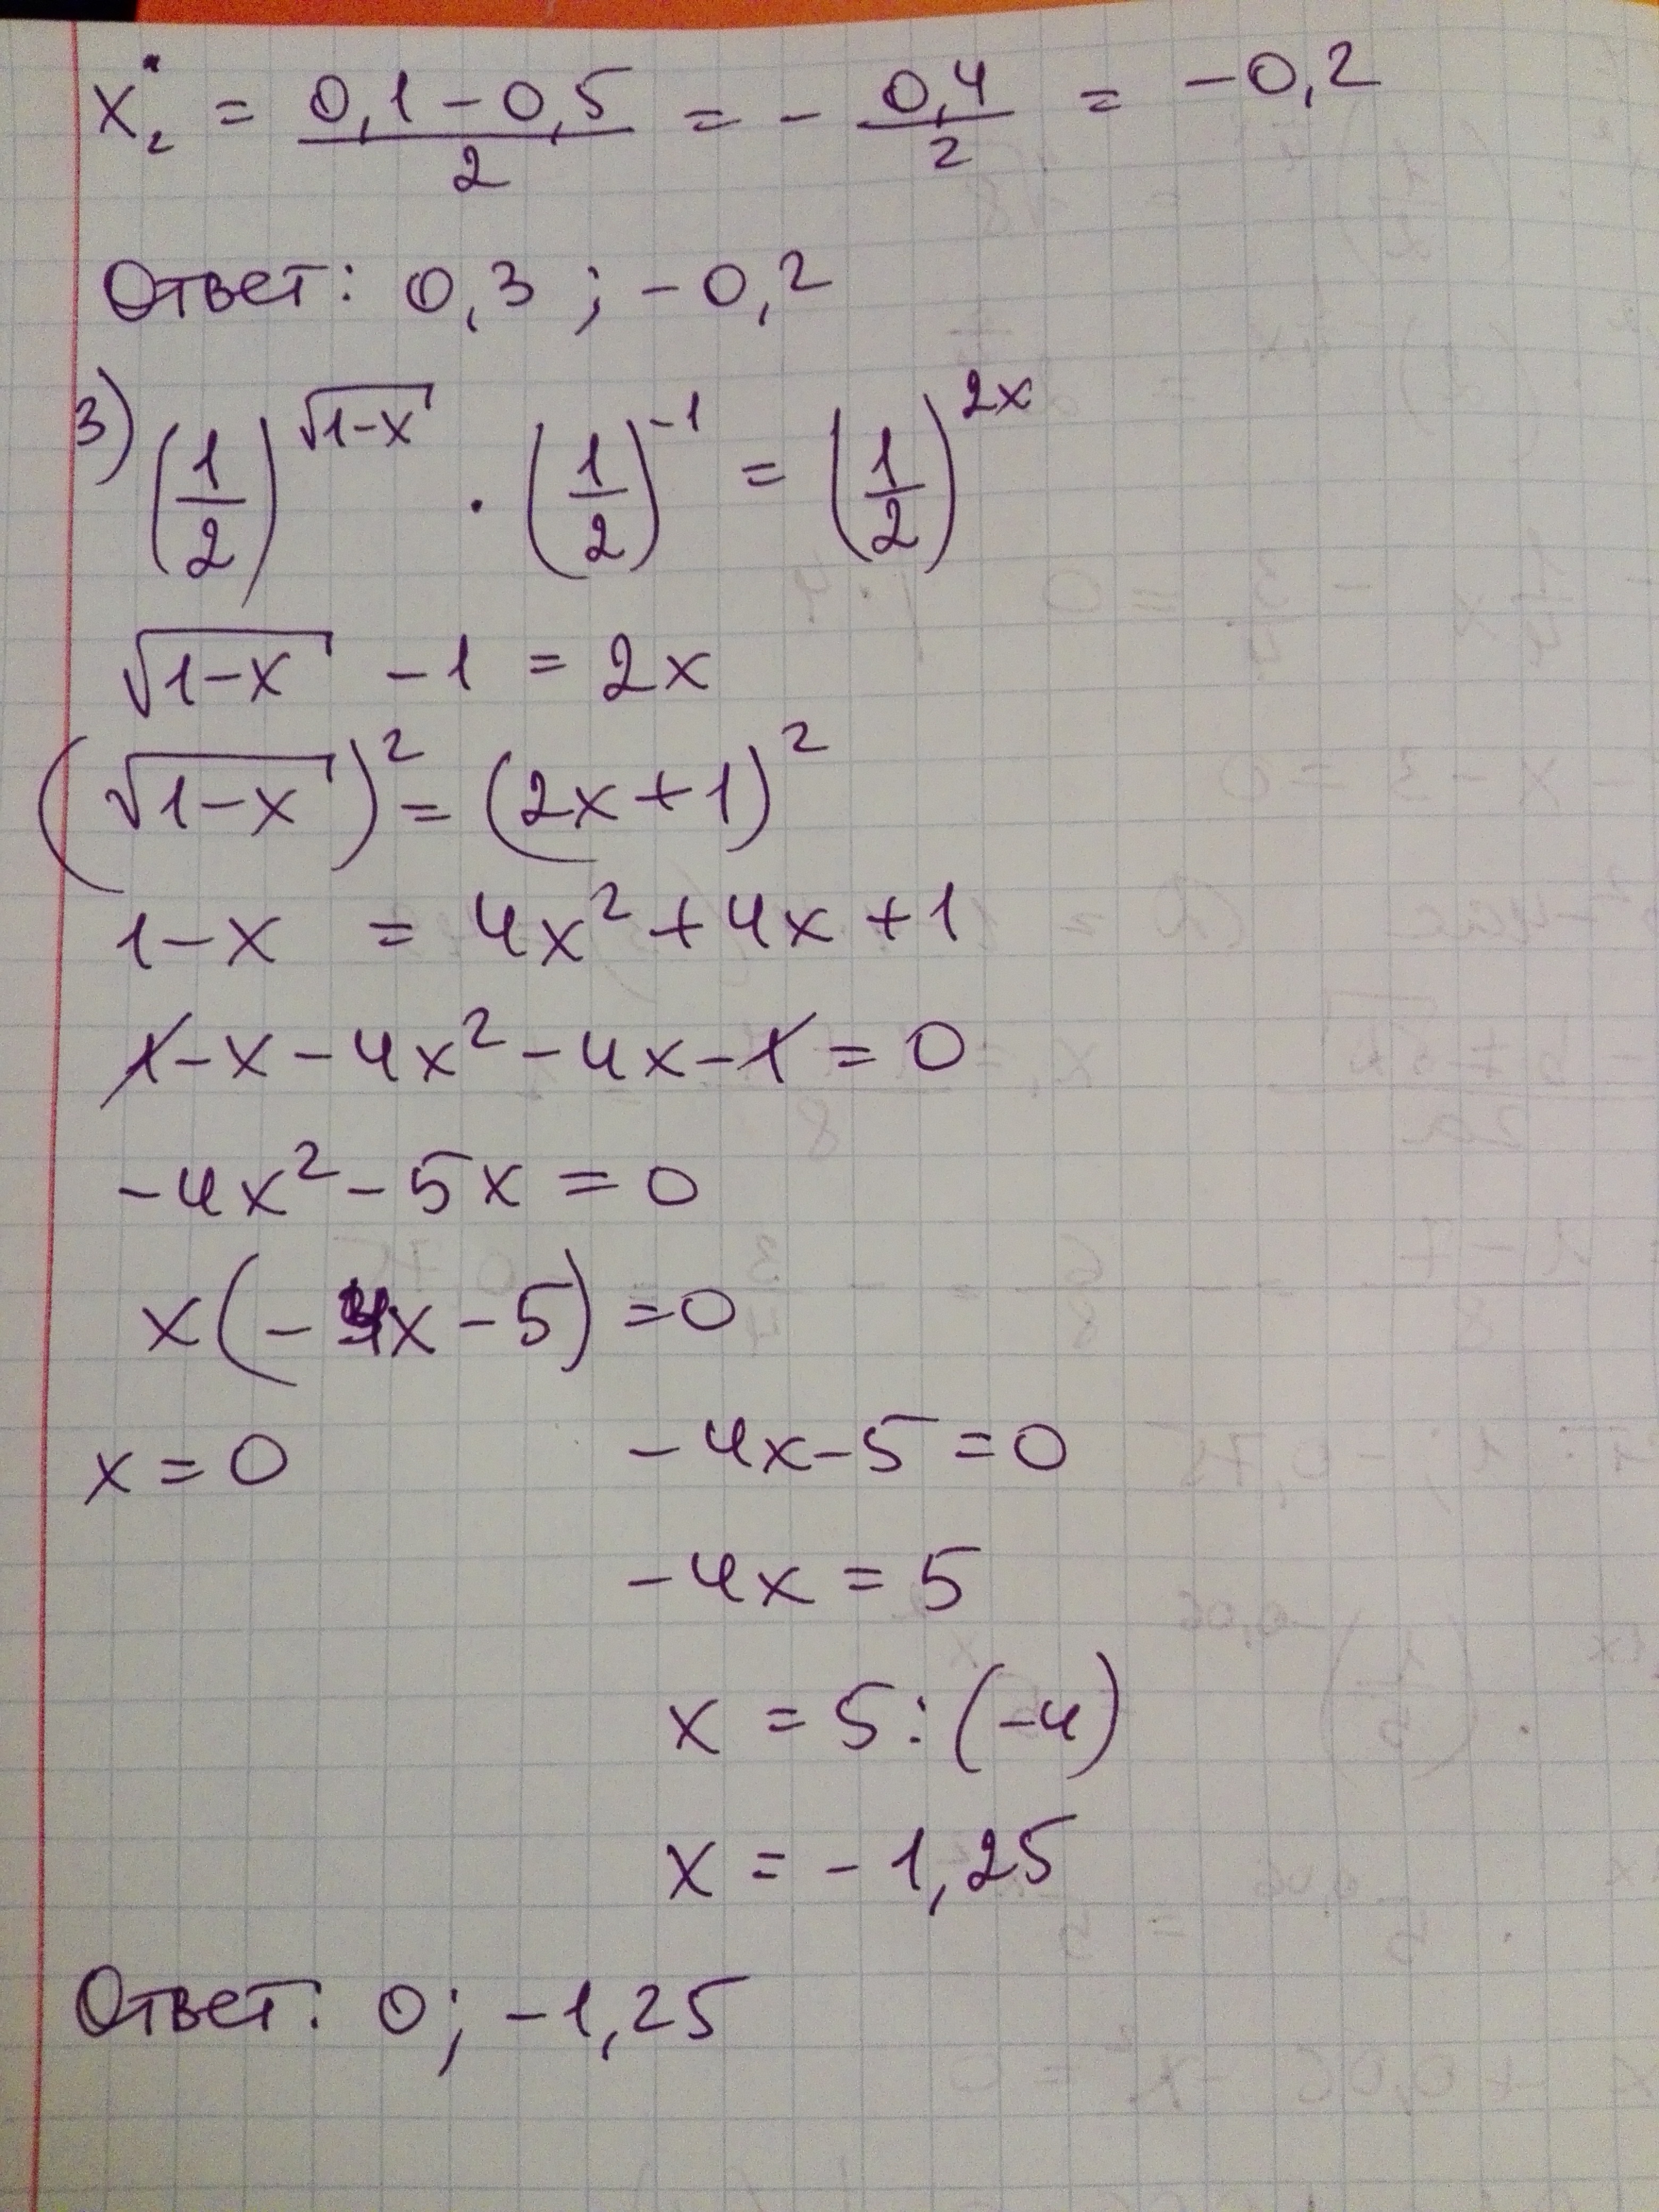 x₂ = (0,1 - 0,5)/2 = - 0,4/2 = -0,2
Ответ: 0,3 ; -0,2
3) (1/2)^√(1-x) · (1/2)^-1 = (1/2)^2x
√(1-x) - 1 = 2x
(√(1-x))² = (2x+1)²
1-x = 4x² + 4x + 1
1-x-4x²-4x-1=0
-4x²-5x=0
x(-4x-5)=0
x=0 -4x-5=0
-4x=5
x=5:(-4)
x=-1,25
Ответ: 0; -1,25